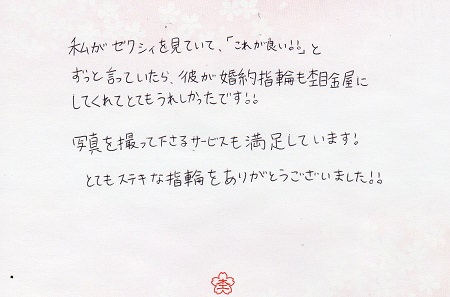 私がゼクシィを見ていて、「これが良い!!」と
ずっと言っていたら、彼が婚約指輪も杢目金屋に
してくれてとてもうれしかったです!!
写真を撮って下さるサービスも満足しています!
とてもステキな指輪をありがとうございました!!
杢